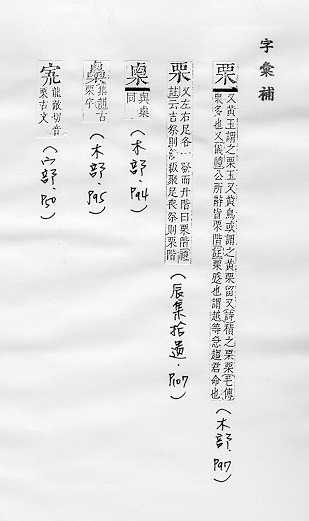 字彙補
栗 又黃玉謂之栗玉又黃鳥或謂之黃栗留又詩積之栗栗毛傳
眾多也又儀禮公所辭皆栗階註栗蹙也謂越等急趨君命也
(木部.P97)
栗 又左右足各一發而升階曰栗階禮
註云吉祭則級聚足喪祭則栗階
(辰集拾遺.P107)
與栗
同
(木部.P94)
集韻古
栗字
(木部.P95)
龍敵切音
栗古文
(宀部.P50)